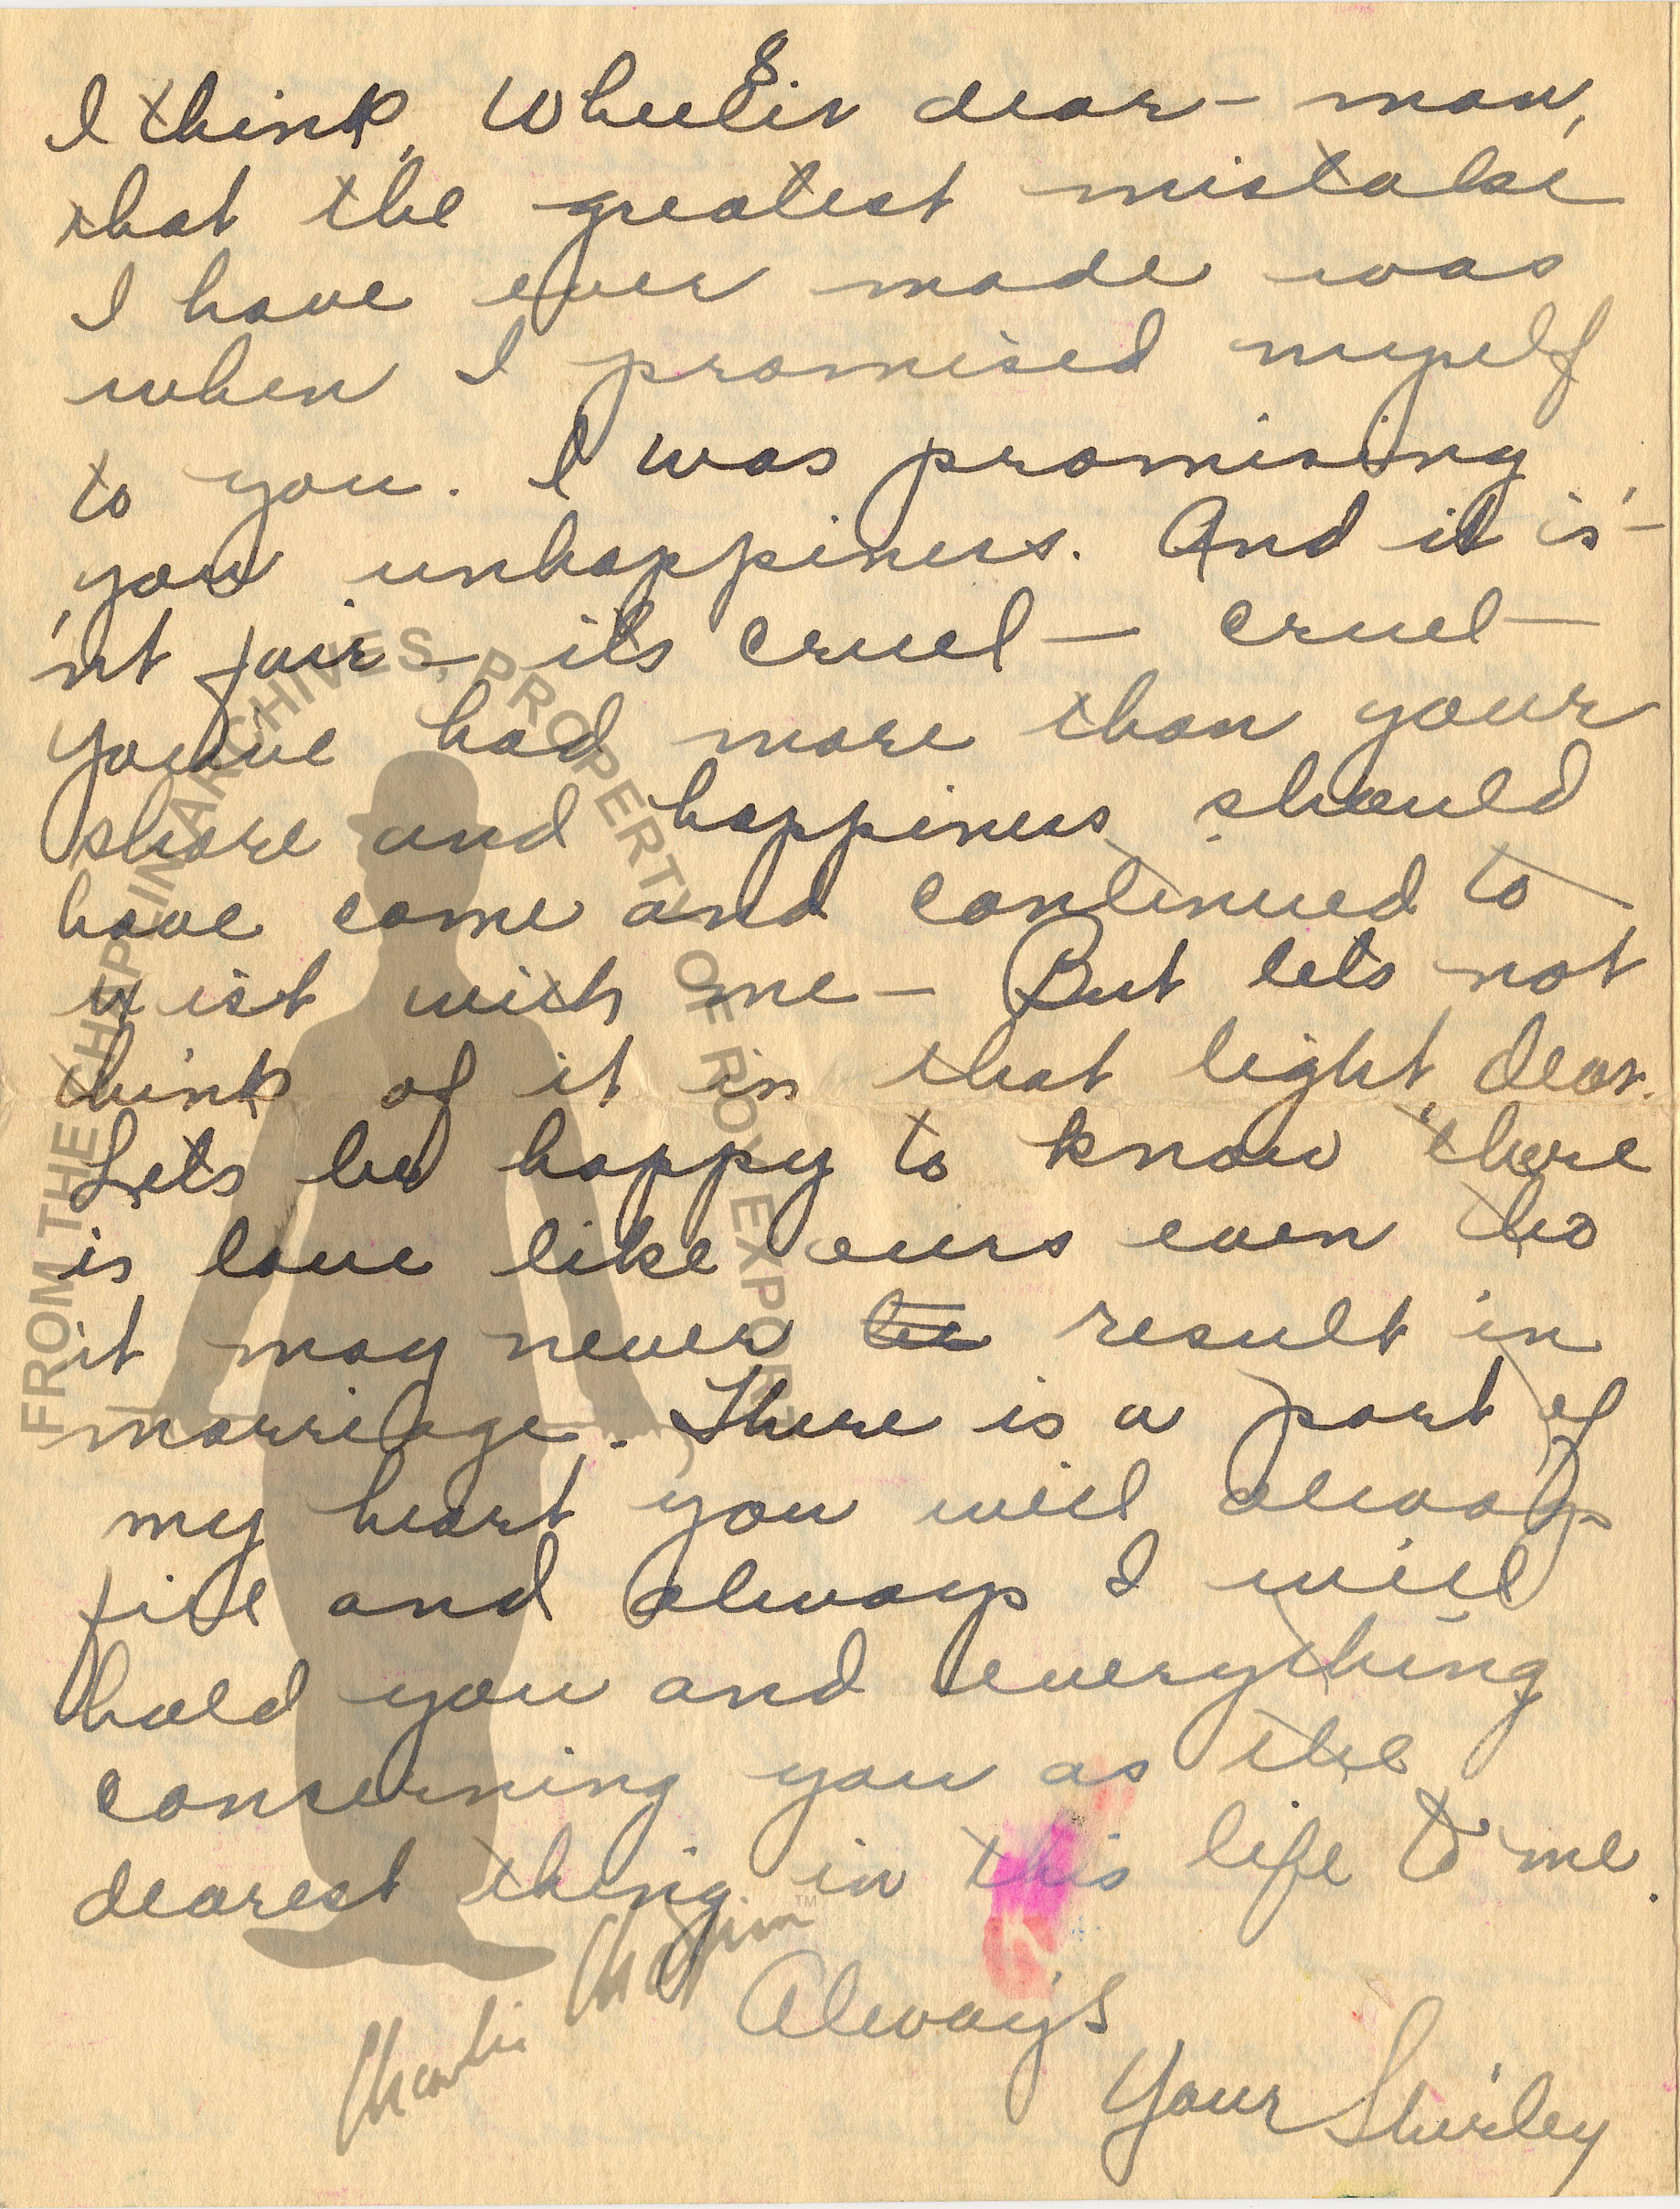 8.
I think, Wheeler dear - man,
that the greatest mistake
I have ever made was
when I promised myself
to you. I was promising
you unhappiness. And it is'-
'nt fair - its cruel - cruel -
Youve had more than your
share and happiness should
have come and continued to
exist with me - But lets not
think of it in that light, dear.
Lets be happy to know there
is love like ours even tho
it may never be result in
marriage. There is a part of
my heart you will always
fill and always I will
hold you and everything
concerning you as the
dearest thing in this life to me.
Always
Your Shirley
FROM THE CHAPLIN ARCHIVES, PROPERTY OF ROY EXPORT
Charlie Chaplin™